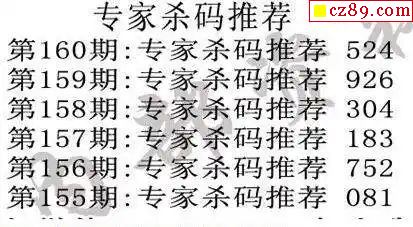 cz89.com
专家杀码推荐
第160期:专家杀码推荐 524
第159期:专家杀码推荐 926
第158期:专家杀码推荐 304
第157期:专家杀码推荐 183
第156期:专家杀码推荐 752
第155期:专家杀码推荐 081